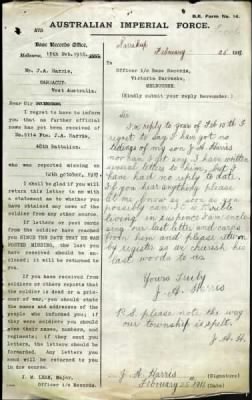 B.R. Form No. 14.
AUSTRALIAN IMPERIAL FORCE.
Base Records Office,
Melbourne, 15th Feb. 1918.
Mr. J.A. Harris,
West Australia.
Dear Sir
I regret to have to inform you
that no further official
news has yet been received of
No. Pte. J.A. Harris,
48th Battalion.
who was reported missing on
12th October, 1917.
I shall be glad if you will
return this letter to me with
a statement as to whether you
have obtained any news of the
soldier from any other source.
If letters or post cards
from the soldier have reached
you SINCE THE DATE THAT HE WAS
POSTED MISSING, the last you
have received should be enclosed;
it will be returned to
you.
If you have received from
soldiers or others reports that
the soldier is dead or a prisoner
of war, you should state
the names and addresses of the
people who informed you; if
they were soldiers you should
give their names, numbers, and
regiments; if they send you
letters, the letters should be
forwarded. Any letters you
send will be returned to you
in due course.
J. M. LEAN, Major,
Officer i/c Base Records.
February 25 1918
To
Officer i/c Base Records,
Victoria Barracks,
Melbourne.
(Kindly submit your reply hereunder.)
Sir
In reply to yours of Feb 15th I
regret to say I have got no
tidings of my son J. A. Harris
nor can I get any I have written
several letters to them, but
have had no reply to date
If you hear anything please
let me know as soon as you
possibly can it is terrible
living in suspence I am enclosing
our last letter and card
from him and please return
by register as we cherish his
last words to us
Yours Truly
J. A. Harris
P.S. please note the way
our township is spelt.
J. A. H.
J. A. Harris (Signature)
February 25 1918 (Date)